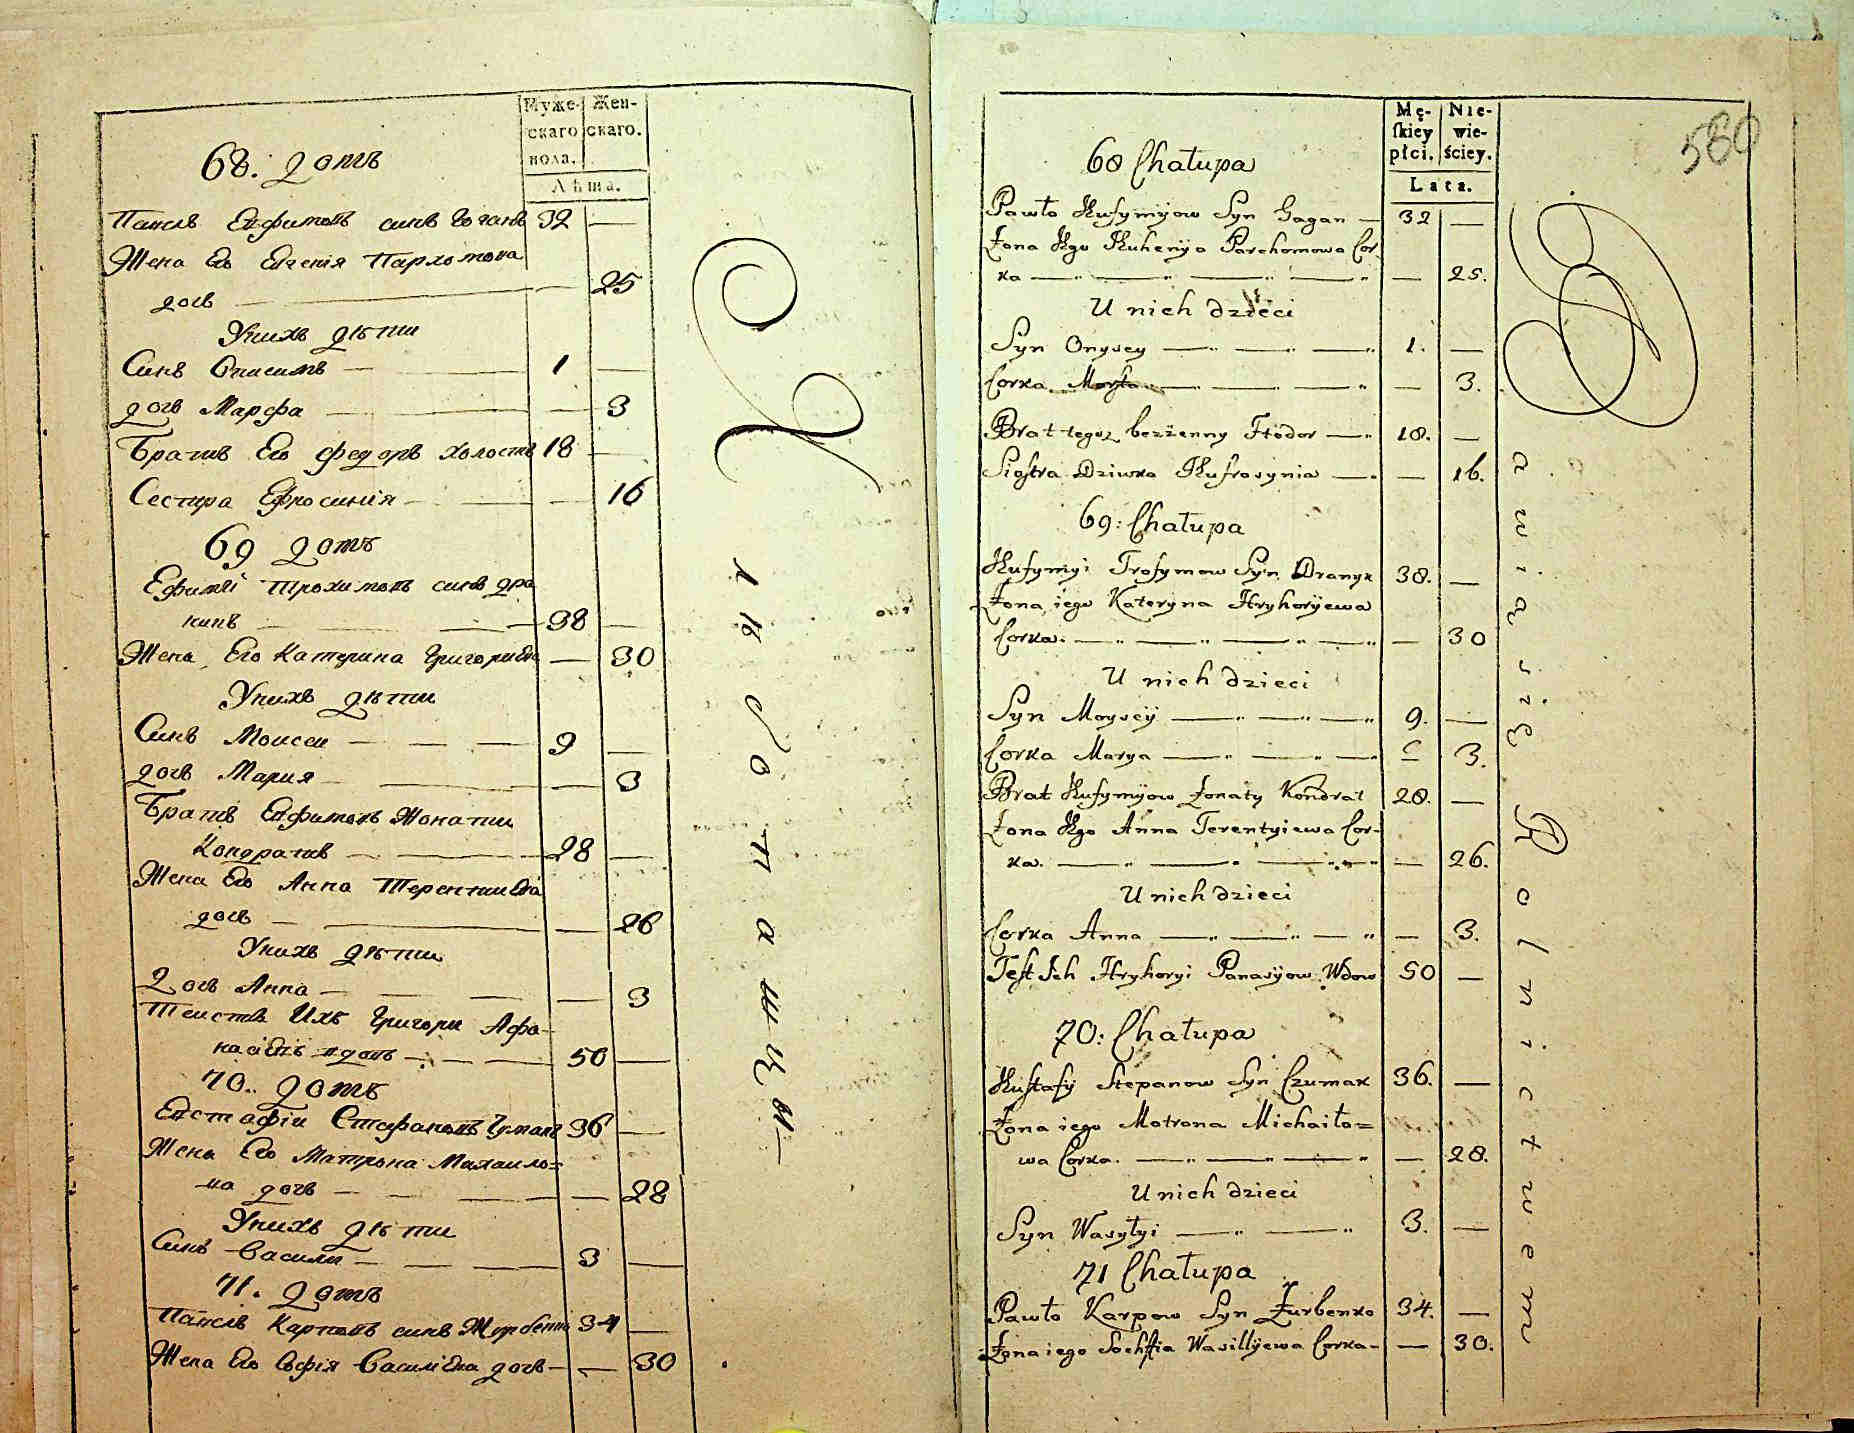 Муже-
скаго
пола.
Жен-
скаго.
Лѣта.
68. домъ
Павелъ Евфимовъ синъ Гогань 32 —
Жена Его Евгенiя Пархомова
дочь — — 25
Унихъ дѣти
Синъ Онисимъ — 1 —
дочь Марфа — — 3
Братъ Его Федоръ холостъ 18 —
Сестра Ефросинiя — — 16
69 домъ
Ефимiй Трохимовъ синъ дра
никъ — 38 —
Жена Его Катерина Григориева — 30
Унихъ дѣти
Синъ Моисей — 9 —
дочь Мария — — 3
Братъ Евфимовъ Жонати
Кондратъ — 28 —
Жена Его Анна Терентиева
дочь — — 26
Унихъ дѣти
Дочь Анна — — 3
Тейсть Ихъ Григори Афа-
насiевъ вдовъ — 50 —
70. домъ
Евстафiи Стефановъ Чумакъ 36 —
Жена Его Матрона Михаило=
ва дочь — — 28
Унихъ дѣти
Синъ Васили — 3 —
71. домъ
Павелъ Карповъ синъ Журбенко 34 —
Жена Его Софiя Василiева дочь — — 30
Mę-
skiey
płci.
Nie-
wie-
ściey.
Lata.
580
68 Chałupa
Pawło Kufymijow Syn Gagan — 32 —
Żona Jego Kuhenija Parchomowa Cor-
ka — — 25.
U nich dzieci
Syn Onysey — 1. —
Corka Marfa — — 3.
Brat tegoz bezżenny Fiodor — 18. —
Siostra Dziwka Kufrosynia — — 16.
69: Chałupa
Kufymyi Trofymow Syn Dranyk 38. —
Żona iego Kateryna Hryhoryiewa
Corka. — — 30
U nich dzieci
Syn Moysey — 9. —
Corka Marya — — 3.
Brat Kufymijow Żonaty Kondrat 28. —
Żona Jego Anna Terentyiewa Cor-
ka. — — 26.
U nich dzieci
Corka Anna — — 3.
Test Ich Hryhoryi Panasyow Wdow 50 —
70: Chałupa
Kustafy Stepanow Syn Czumak 36. —
Żona iego Motrona Michaiło=
wa Corka. — — 28.
U nich dzieci
Syn Wasylyi — 3. —
71 Chałupa
Pawło Karpow Syn Żurbenko 34. —
Żona iego Sochfia Wasillyewa Corka — — 30.
awiąsię Rolnictwem